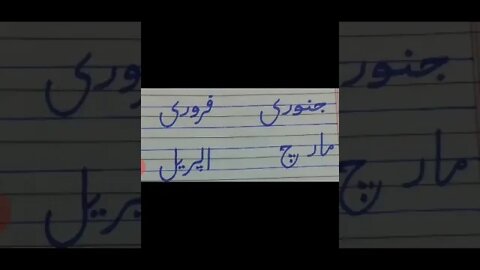 جنوری فروری
مارچ اپریل